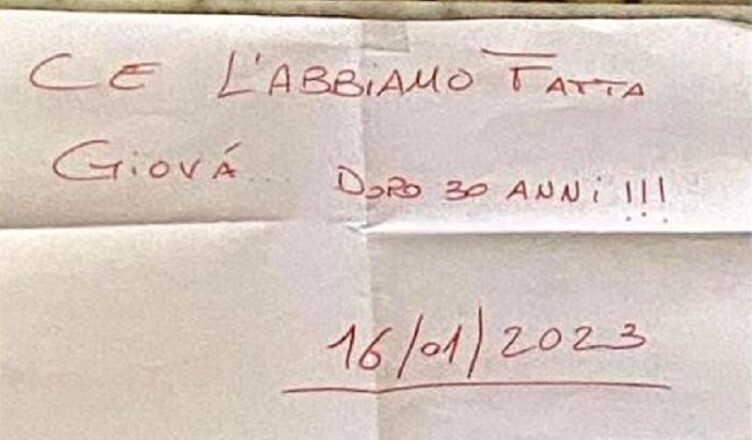 CE L'ABBIAMO FATTA
GIOVÁ DOPO 30 ANNI!!!
16/01/2023